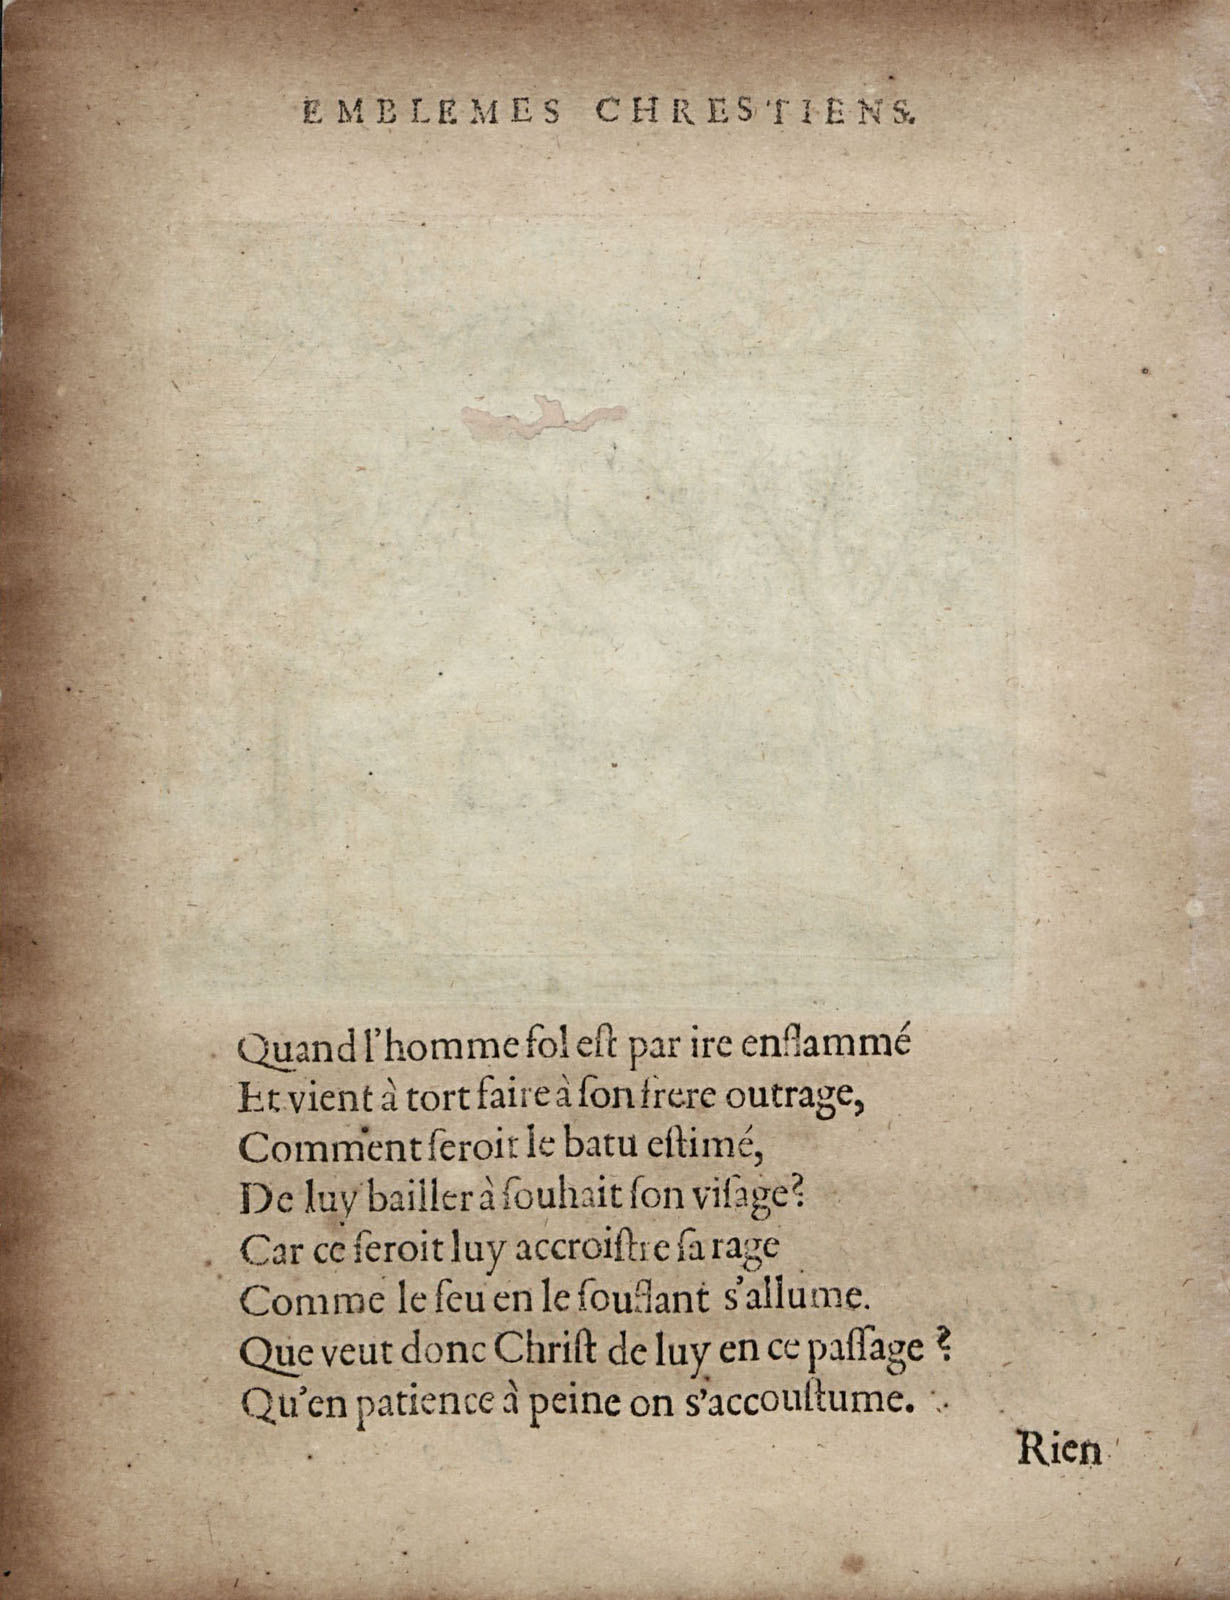 EMBLEMES CHRESTIENS.
Quand l'homme fol eſt par ire enflammé
Et vient à tort faire à ſon frere outrage,
Comment ſeroit le batu eſtimé,
De luy bailler à ſouhait ſon viſage?
Car ce ſeroit luy accroiſtre ſa rage
Comme le feu en le ſouflant s'allume.
Que veut donc Chriſt de luy en ce paſſage?
Qu'en patience à peine on s'accouſtume.
Rien